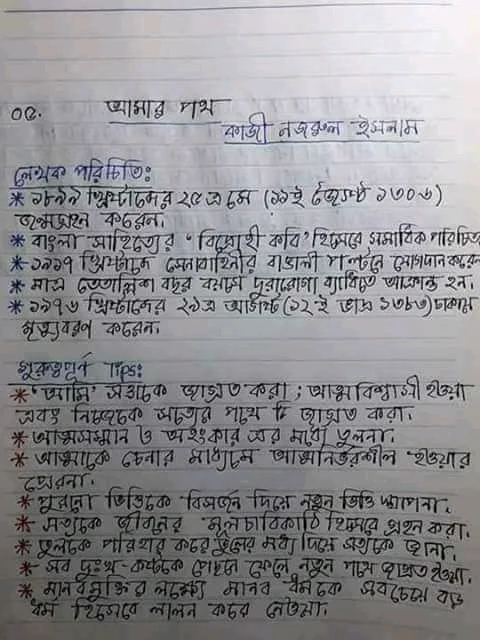 ০৫. আমার পথ
কাজী নজরুল ইসলাম
লেখক পরিচিতি:
* ১৮৯৯ খ্রিষ্টাব্দের ২৫ এ মে (১১ই জ্যৈষ্ঠ ১৩০৬)
জন্মগ্রহন করেন।
* বাংলা সাহিত্যের 'বিদ্রোহী কবি' হিসেবে সমাধিক পরিচিত
* ১৯১৭ খ্রিষ্টাব্দে সেনাবাহিনীর বাঙালী পল্টনে যোগদান করেন
* মাত্র তেতাল্লিশ বছর বয়সে দুরারোগ্য ব্যাধিতে আক্রান্ত হন।
* ১৯৭৬ খ্রিষ্টাব্দের ২৯এ আগস্ট (১২ই ভাদ্র ১৩৮৩) ঢাকায়
মৃত্যুবরণ করেন।
গুরুত্বপূর্ণ Tips:
* 'আমি' সত্তাকে জাগ্রত করা; আত্মবিশ্বাসী হওয়া
এবং নিজেকে সত্যের পথে জাগ্রত করা।
* আত্মসম্মান ও অহংকার এর মধ্যে তুলনা।
* আত্মাকে চেনার মাধ্যমে আত্মনির্ভরশীল হওয়ার
প্রেরনা।
* পুরানো ভিত্তিকে বিসর্জন দিয়ে নতুন ভিত্তি স্থাপনা।
* সত্যকে জীবনের মূলচাবিকাঠি হিসেবে গ্রহন করা।
* ভুলকে পরিহার করে ভুলের মধ্য দিয়ে সত্যকে জানা।
* সব দুঃখ-কষ্টকে পেছনে ফেলে নতুন পথে জাগ্রত হওয়া।
* মানবমুক্তির লক্ষ্যে মানব ধর্মকে সবচেয়ে বড়
ধর্ম হিসেবে লালন করে নেওয়া।